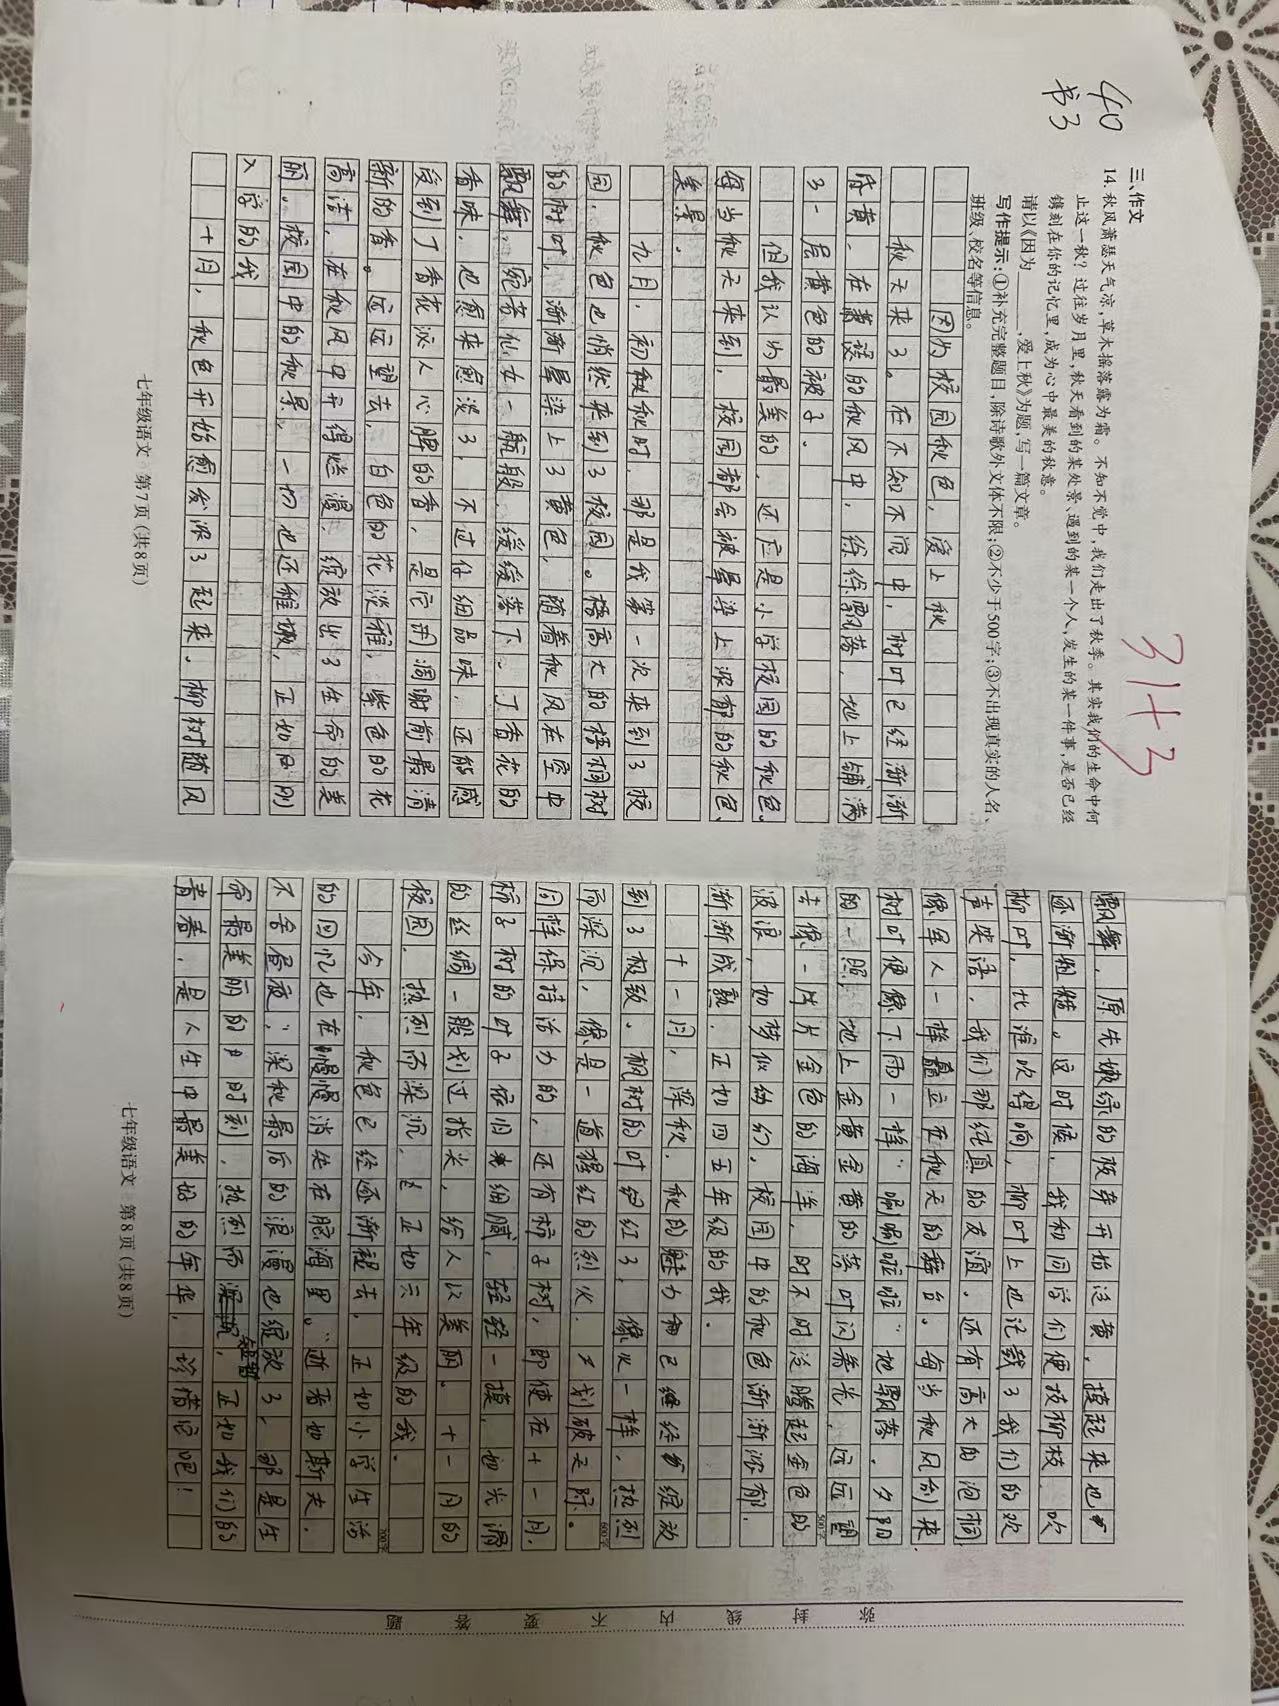 40
书3
31+3
三、作文
14. 秋风萧瑟天气凉，草木摇落露为霜。不知不觉中，我们走出了秋季。其实我们的生命中何
止这一秋？过往岁月里，秋天看到的某处景、遇到的某一个人，发生的某一件事，是否已经
镌刻在你的记忆里，成为心中最美的秋意。
请以《因为______，爱上秋》为题，写一篇文章。
写作提示：①补充完整题目，除诗歌外文体不限；②不少于500字；③不出现真实的人名、
班级、校名等信息。
因为校园秋色，爱上秋
秋天来了。在不知不觉中，树叶已经渐渐
昏黄，在萧瑟的秋风中，纷纷飘落，地上铺满
了一层黄色的被子。
但我认为最美的，还应是小学校园的秋色，
每当秋天来到，校园都会被晕染上浓郁的秋色
美景。
九月，初秋时，那是我第一次来到了校
园，秋色也悄然来到了校园。高大的梧桐树
的树叶，渐渐晕染上了黄色，随着秋风在空中
飘舞，宛若仙女一般，缓缓落下。丁香花的
香味，也愈来愈淡了，不过仔细品味，还能感
受到丁香花沁人心脾的香，是它凋谢前最清
新的香。远远望去，白色的花淡雅，紫色的花
高洁，在秋风中开得烂漫，绽放出了生命的美
丽。校园中的秋景，一切也还稚嫩，正如刚
入学的我
十月，秋色开始愈发浓了起来，柳树随风
七年级语文 第7页（共8页）
飘舞，原先嫩绿的枝芽开始泛黄，摸起来也
逐渐粗糙。这时候，我和同学们便拔柳枝，吹
柳叶，比谁吹得响，柳叶上也记载了我们的欢
声笑语，我们那纯真的友谊。还有高大的泡桐
像巨人一样矗立在秋天的舞台。每当秋风刮来，
树叶便像下雨一样“唰唰啦啦”地飘落，夕阳
的一照，地上金黄金黄的落叶闪着光，远远望
去像一片片金色的海洋，时不时泛腾起金色的
波浪，如梦似幼幻，校园中的秋色渐渐浓郁，
渐渐成熟，正如四五年级的我。
十一月，深秋，秋的魅力已经绽放
到了极致。枫树的叶红了，像火一样，热烈
而深沉，像是一道猩红的烈火，划破天际。
同样保持活力的，还有柿子树，即使在十一月，
柿子树的叶子依旧细腻，轻轻一摸，如光滑
的丝绸一般划过指尖，给人以美丽。十一月的
校园，热烈而深沉，正如六年级的我。
今年，秋色已经逐渐褪去，正如小学生活
的回忆也在慢慢消逝在脑海里。“逝者如斯夫，
不舍昼夜，”深秋最后的浪漫也绽放了，那是生
命最美丽的时刻，热烈而短暂，正如我们的
青春，是人生中最美好的年华，珍惜它吧！
500字
600字
700字
七年级语文 第8页（共8页）
弥 封 线 内 不 要 答 题